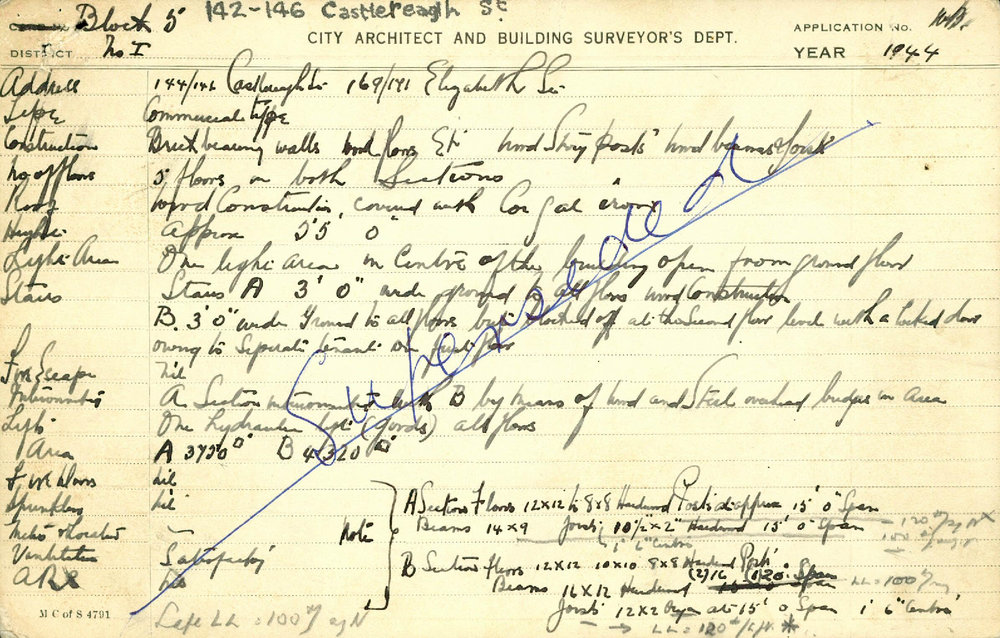 Block 5 142-146 Castlereagh St
CITY ARCHITECT AND BUILDING SURVEYOR'S DEPT.
APPLICATION No.
DISTRICT No I
YEAR 1944
Address 144/146 Castlereagh St 169/171 Elizabeth St
Type Commercial type
Construction Brick bearing walls wood floors Etc wood Story posts wood beams & joists
No of floors 5 floors on both Sections
Roof Wood Construction, covered with Cor gal iron
Height Approx 55' 0"
Light Area One light area in Centre of the building open from ground floor
Stairs Stairs A 3' 0" wide ground to all floors wood Construction
B. 3' 0" wide Ground to all floors but blocked off at the Second floor level with a locked door
owing to Separate tenant on first floor
Fire Escape Nil
A Section B by means of wood and Steel overhead bridges in area
Lifts One Hydraulic lift (goods) all floors
Area A 3750 B 4320
Fire Doors Nil
Sprinklers Nil
Ventilation Satisfactory
Note
A Section Floors 12x12 to 8x8 Hardwood Posts at approx 15' 0" Span
Beams 14x9 Joists 10½"x2" Hardwood 15' 0" Span
1' 6" Centres
B Section Floors 12x12 10x10 8x8 Hardwood Posts
Beams 16x12 Hardwood 20' Span
LL=100
Joists 12x2 at 15' 0 Span 1' 6" Centres
LL=120
M C of S 4791
Safe LL = 100
Superseded